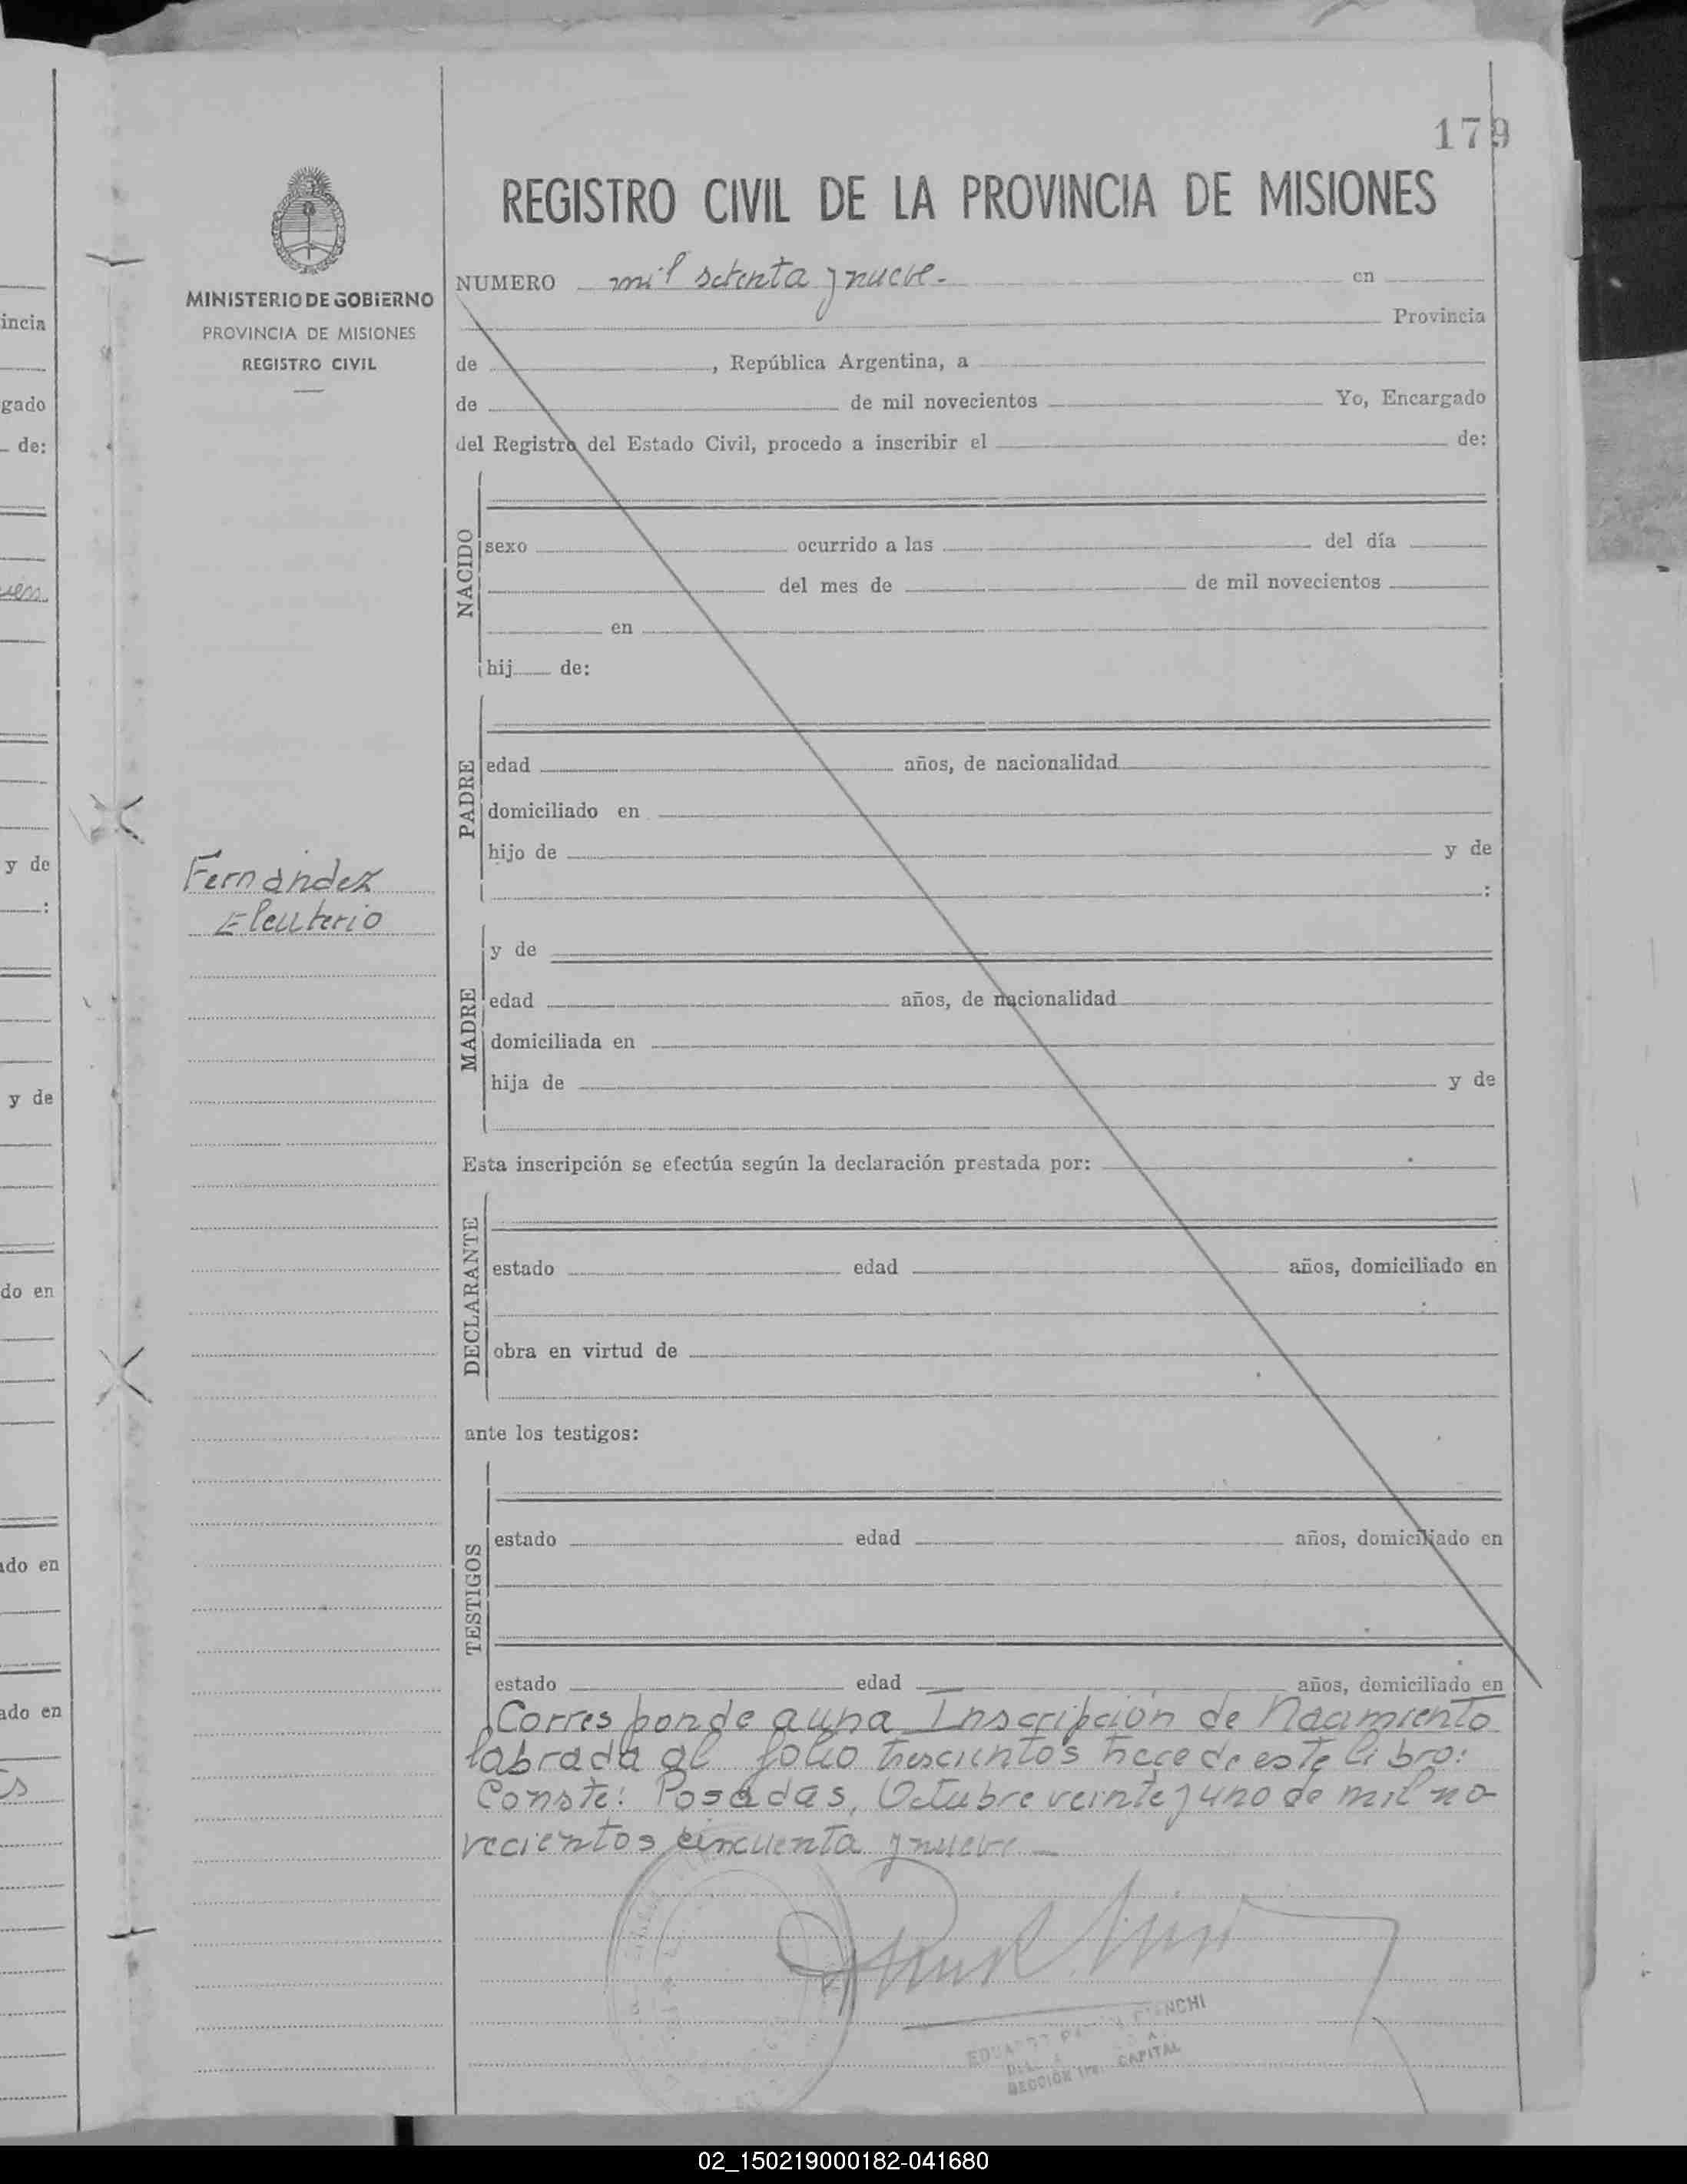 179
REGISTRO CIVIL DE LA PROVINCIA DE MISIONES
MINISTERIO DE GOBIERNO
PROVINCIA DE MISIONES
REGISTRO CIVIL
NUMERO mil setenta y nueve.- en
Provincia
de , República Argentina, a
de de mil novecientos Yo, Encargado
del Registro del Estado Civil, procedo a inscribir el de:
NACIDO
sexo ocurrido a las del día
del mes de de mil novecientos
en
hij de:
PADRE
edad años, de nacionalidad
domiciliado en
hijo de y de
:
Fernández
Eleuterio
MADRE
y de
edad años, de nacionalidad
domiciliada en
hija de y de
Esta inscripción se efectúa según la declaración prestada por:
DECLARANTE
estado edad años, domiciliado en
:
obra en virtud de
ante los testigos:
TESTIGOS
estado edad años, domiciliado en
estado edad años, domiciliado en
Corresponde a una Inscripción de Nacimiento
labrada al folio trescientos trece de este libro:
Conste: Posadas, Octubre veinte y uno de mil no-
vecientos cincuenta y nueve -
CAPITAL
incia
gado
de:
y de
:
y de
do en
ado en
ado en
02_150219000182-041680